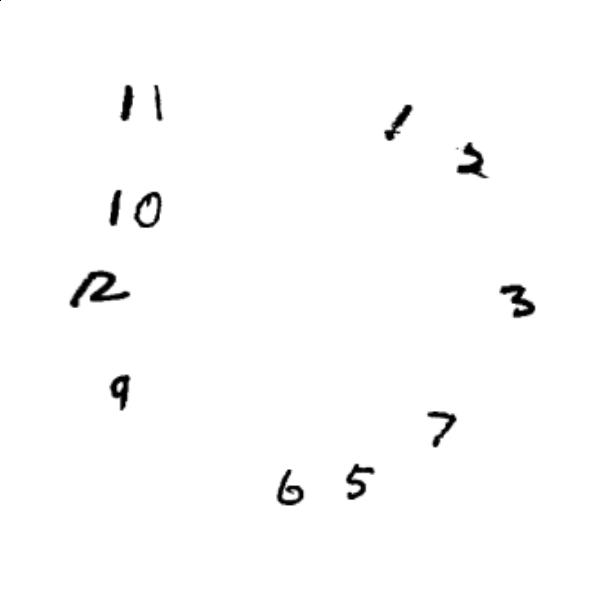 11
1
2
10
12
3
9
7
6 5